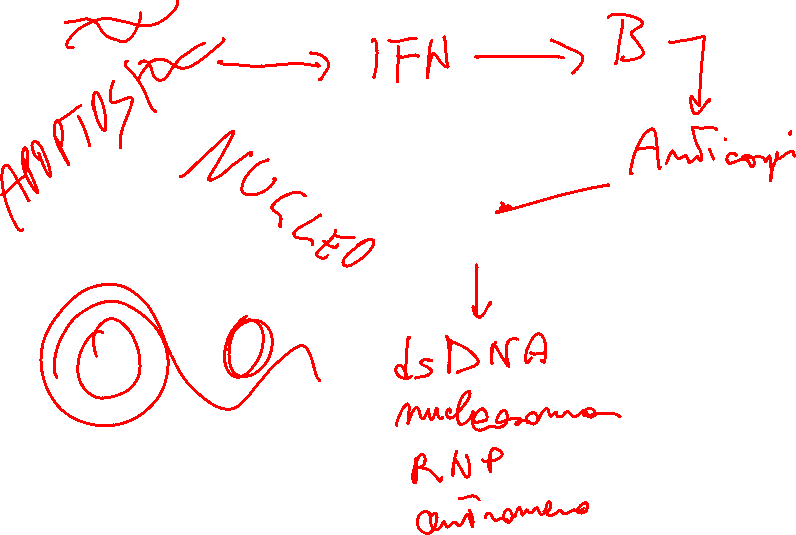 APOPTOSI
IFN
B
Anticorpi
NUCLEO
dsDNA
nucleosoma
RNP
centromero